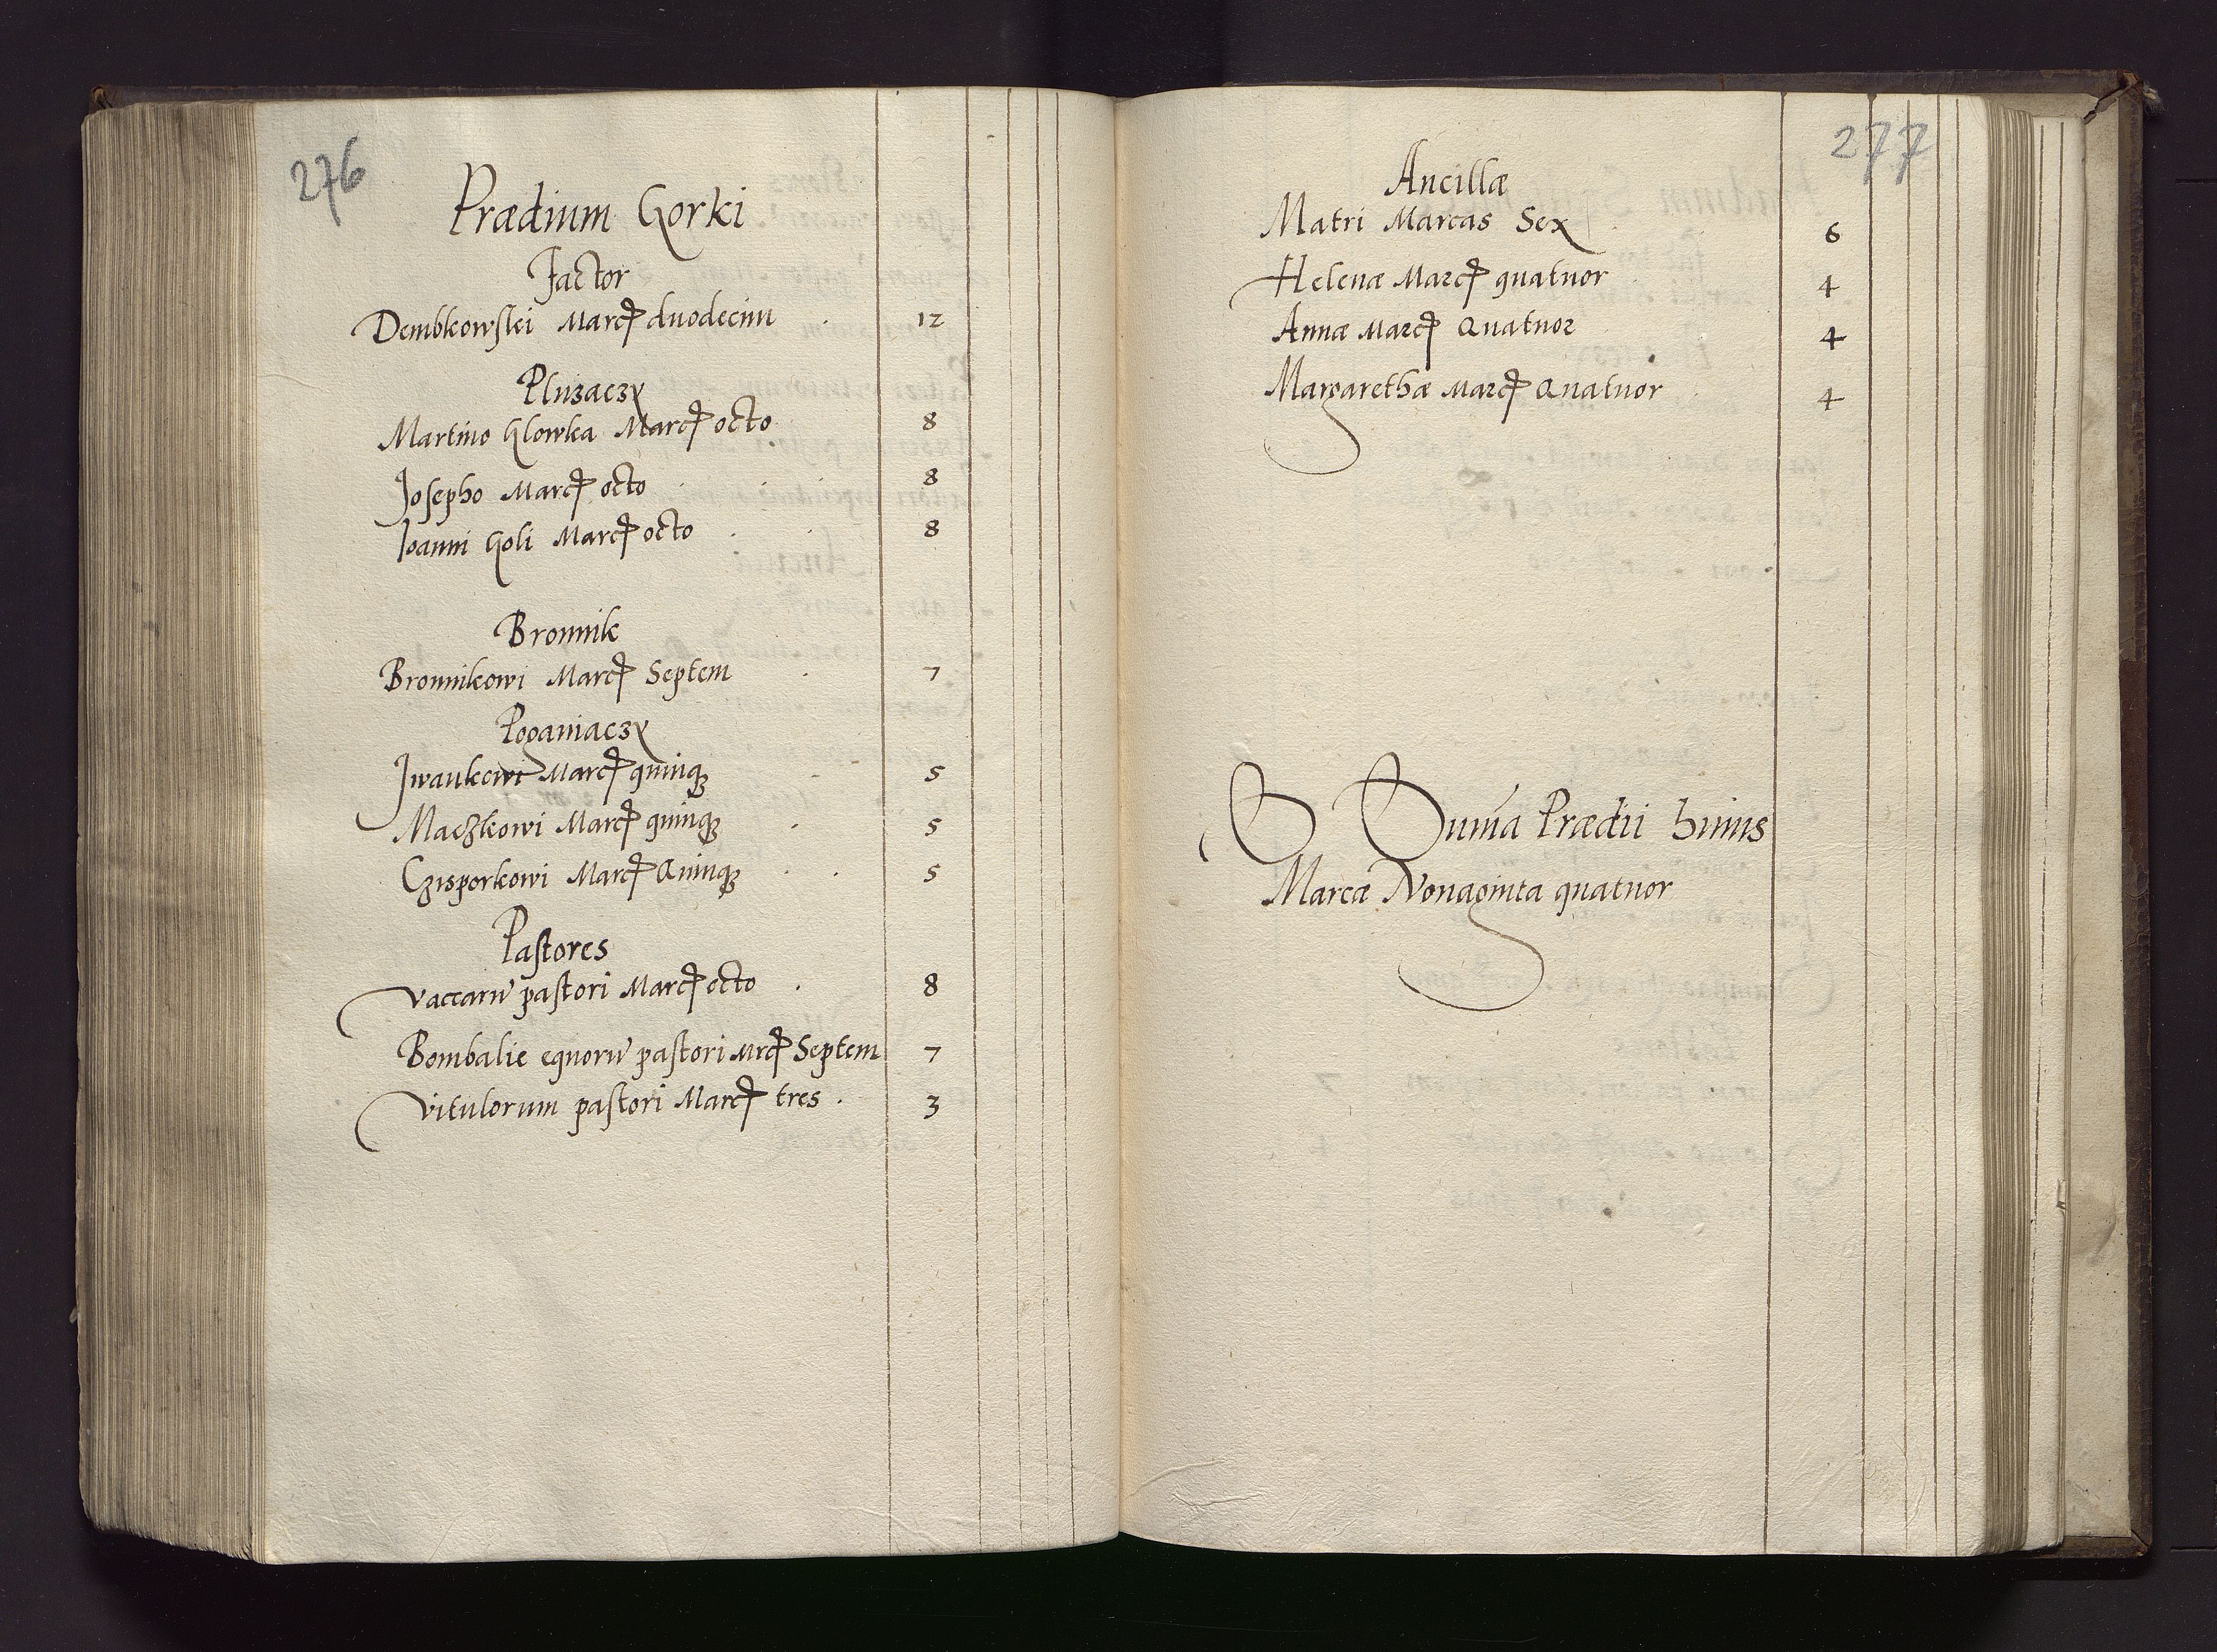 276
Prædium Gorki
Factor
Dembkowskei Marcꝭ duodecim 12
Pluzaczy
Martino Glowka Marcꝭ octo 8
Josepho Marcꝭ octo 8
Ioanni Goli Marcꝭ octo 8
Bronnik
Bronnikowi Marcꝭ Septem 7
Poganiaczy
Jwankowi Marcꝭ quinqꝫ 5
Maczkowi Marcꝭ quinqꝫ 5
Czisporkowi Marcꝭ Quinqꝫ 5
Pastores
Vaccarū pastori Marcꝭ octo 8
Bombalie equorū pastori Mrcꝭ Septem 7
Vitulorum pastori Marcꝭ tres 3
277
Ancillæ
Matri Marcas Sex 6
Helenæ Marcꝭ quatuor 4
Annæ Marcꝭ Quatuor 4
Margarethæ Marcꝭ Quatuor 4
Suma Prædii huius
Marcæ Nonaginta quatuor